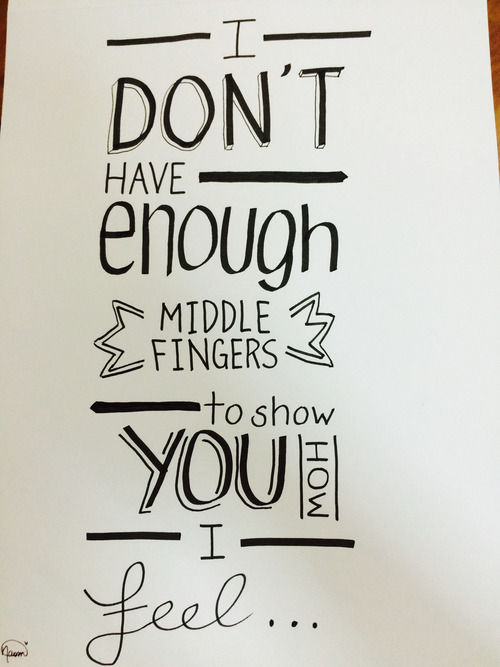 I
DON'T
HAVE
enough
MIDDLE
FINGERS
to show
YOU HOW
I
feel...